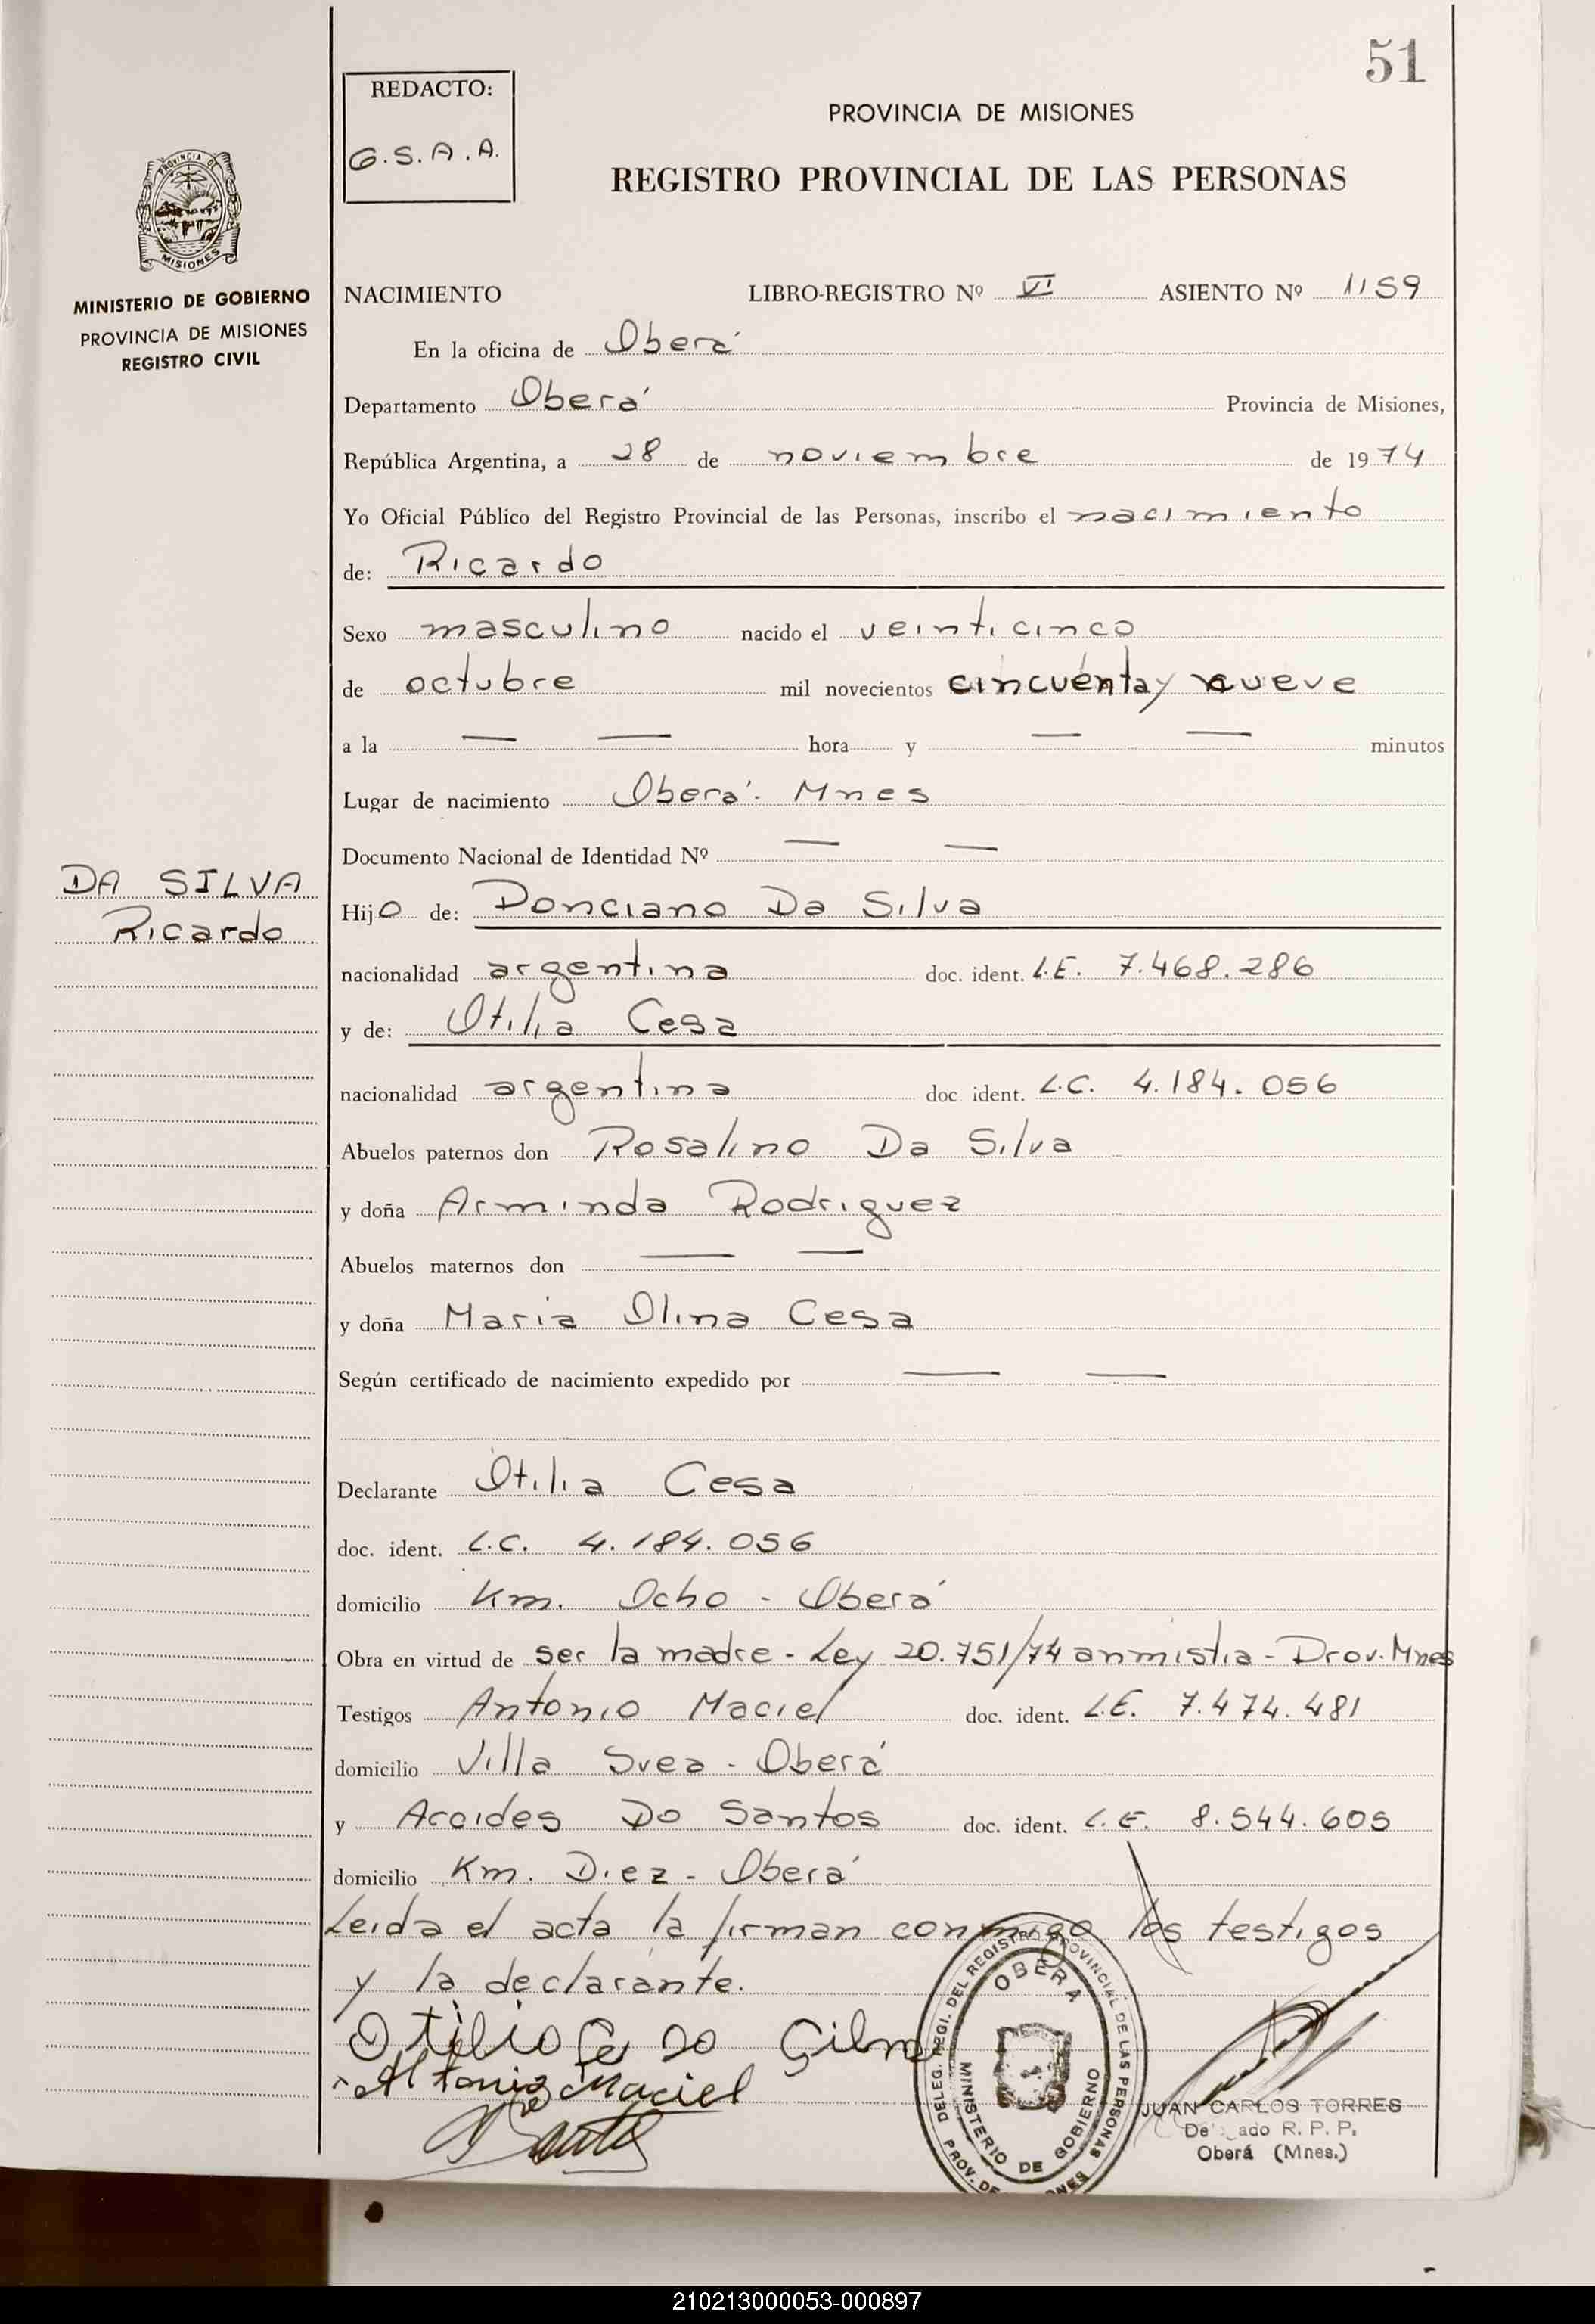 51
REDACTO:
G.S.A.A.
PROVINCIA DE MISIONES
REGISTRO PROVINCIAL DE LAS PERSONAS
PROVINCIA DE
MISIONES
MINISTERIO DE GOBIERNO
PROVINCIA DE MISIONES
REGISTRO CIVIL
NACIMIENTO LIBRO-REGISTRO Nº VI ASIENTO Nº 1159
En la oficina de Oberá
Departamento Oberá Provincia de Misiones,
República Argentina, a 28 de noviembre de 1974
Yo Oficial Público del Registro Provincial de las Personas, inscribo el nacimiento
de: Ricardo
Sexo masculino nacido el veinticinco
de octubre mil novecientos cincuenta y nueve
a la — — hora y — — minutos
Lugar de nacimiento Oberá. Mnes
Documento Nacional de Identidad Nº — —
DA SILVA
Ricardo
Hijo de: Ponciano Da Silva
nacionalidad argentina doc. ident. L.E. 7.468.286
y de: Otilia Cesa
nacionalidad argentina doc. ident. L.C. 4.184.056
Abuelos paternos don Rosalino Da Silva
y doña Arminda Rodriguez
Abuelos maternos don — —
y doña Maria Olina Cesa
Según certificado de nacimiento expedido por — —
Declarante Otilia Cesa
doc. ident. L.C. 4.184.056
domicilio Km. Ocho - Oberá
Obra en virtud de ser la madre - Ley 20.751/74 anmistia - Prov. Mnes
Testigos Antonio Maciel doc. ident. L.E. 7.474.481
domicilio Villa Svea - Oberá
y Acoides Do Santos doc. ident. L.E. 8.544.605
domicilio Km. Diez - Oberá
Leida el acta la firman conmigo los testigos
y la declarante.
Antonio Maciel
DELEG. REGI. DEL REGISTRO PROVINCIAL DE LAS PERSONAS
OBERA
MINISTERIO DE GOBIERNO
PROV. DE
JUAN CARLOS TORRES
R. P. P.
Oberá (Mnes.)
210213000053-000897